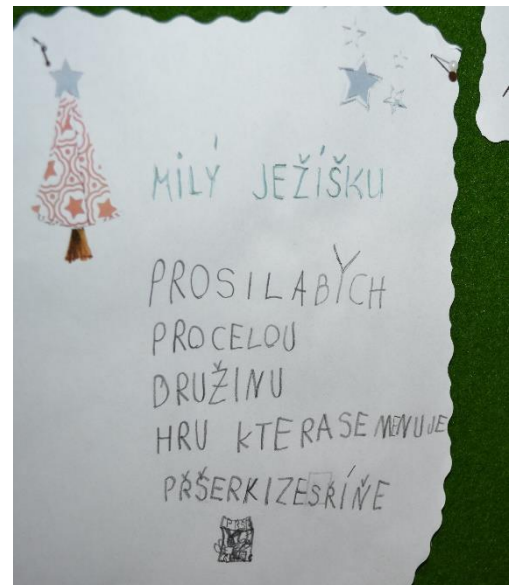 MILÝ JEŽÍŠKU
PROSILABYCH
PROCELOU
DRUŽINU
HRU KTERASE MENUJE
PŘŠERKIZESŘÍŇE